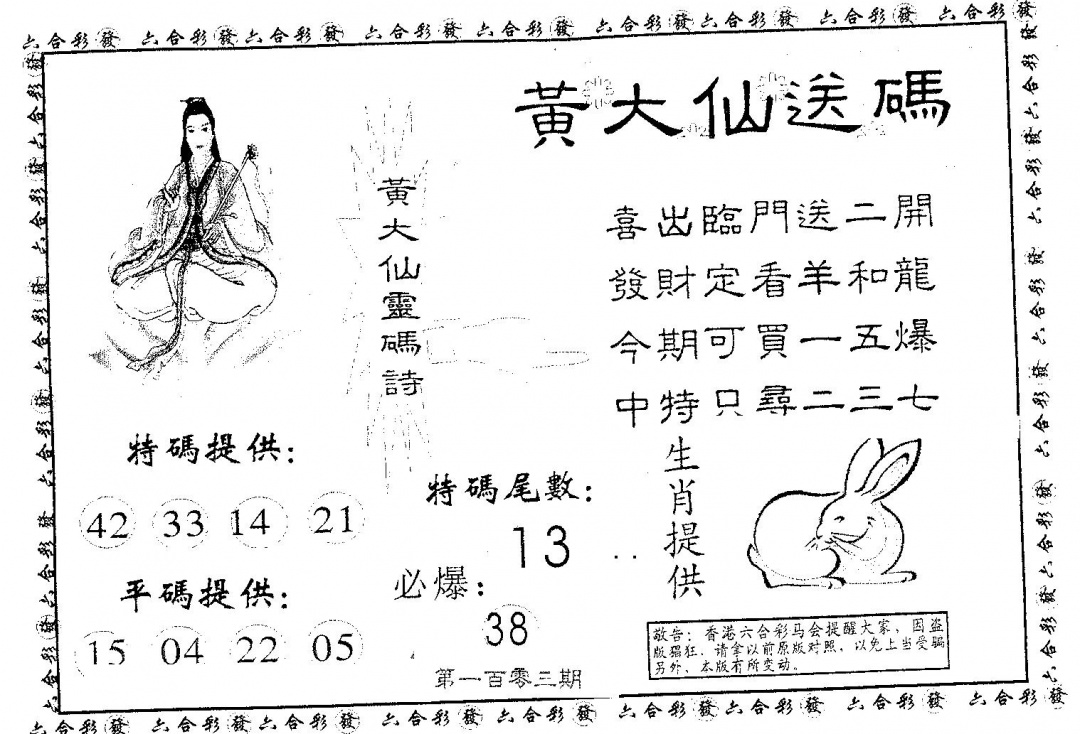 六合彩發 六合彩發 六合彩發 六合彩發 六合彩發 六合彩發 六合彩發 六合彩發 六合彩發
黃大仙送碼
黃大仙靈碼詩
喜出臨門送二開
發財定看羊和龍
今期可買一五爆
中特只尋二三七
特碼提供:
42 33 14 21
平碼提供:
15 04 22 05
特碼尾數:
13
必爆:
38
第一百零三期
生肖提供
敬告：香港六合彩马会提醒大家，因盗
版猖狂，请拿以前原版对照，以免上当受骗
另外，本版有所变动。
六合彩發 六合彩發 六合彩發 六合彩發 六合彩發 六合彩發 六合彩發 六合彩發 六合彩發